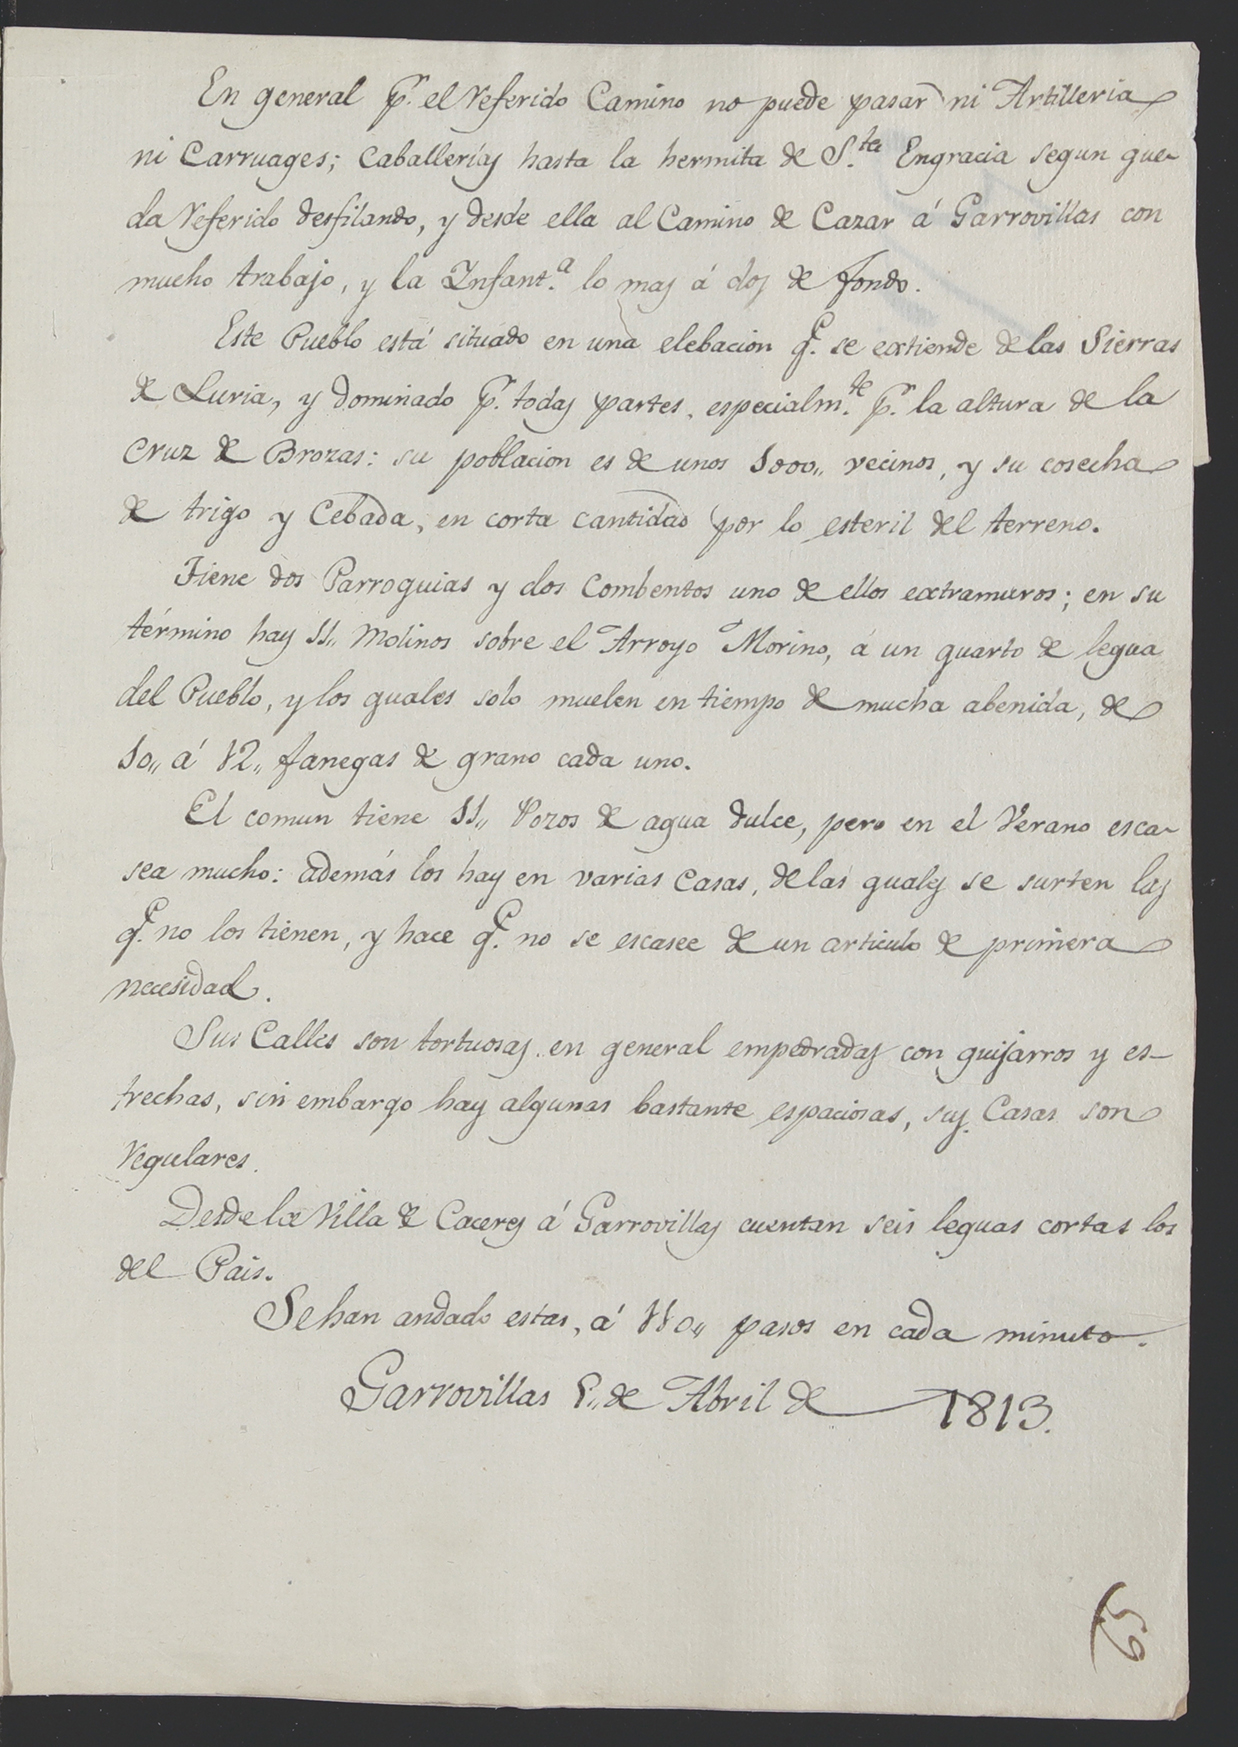 En general p.r el referido Camino no puede pasar ni Artilleria
ni Carruages; Caballerías hasta la hermita de S.ta Engracia segun que-
da referido desfilando, y desde ella al Camino de Cazar á Garrovillas con
mucho trabajo, y la Infant.a lo mas á dos de fondo.
Este Pueblo está situado en una elebacion q.e se extiende de las Sierras
de Luria, y dominado p.r todas partes, especialm.te p.r la altura de la
Cruz de Brozas: su poblacion es de unos 1000,, vecinos, y su cosecha
de trigo y Cebada, en corta cantidad por lo esteril del terreno.
Tiene dos Parroquias y dos Combentos uno de ellos extramuros; en su
término hay 11,, Molinos sobre el Arroyo Morino, á un quarto de legua
del Pueblo, y los quales solo muelen en tiempo de mucha abenida, de
10,, á 12,, fanegas de grano cada uno.
El comun tiene 11,, Pozos de agua dulce, pero en el Verano esca-
sea mucho: además los hay en varias Casas, de las quales se surten las
q.e no los tienen, y hace q.e no se escasee de un articulo de primera
necesidad.
Sus Calles son tortuosas en general empedradas con guijarros y es-
trechas, sin embargo hay algunas bastante espaciosas, sus Casas son
regulares.
Desde la Villa de Caceres á Garrovillas cuentan seis leguas cortas los
del Pais.
Se han andado estas, á 110,, pasos en cada minuto.
Garrovillas 1.. de Abril de 1813.